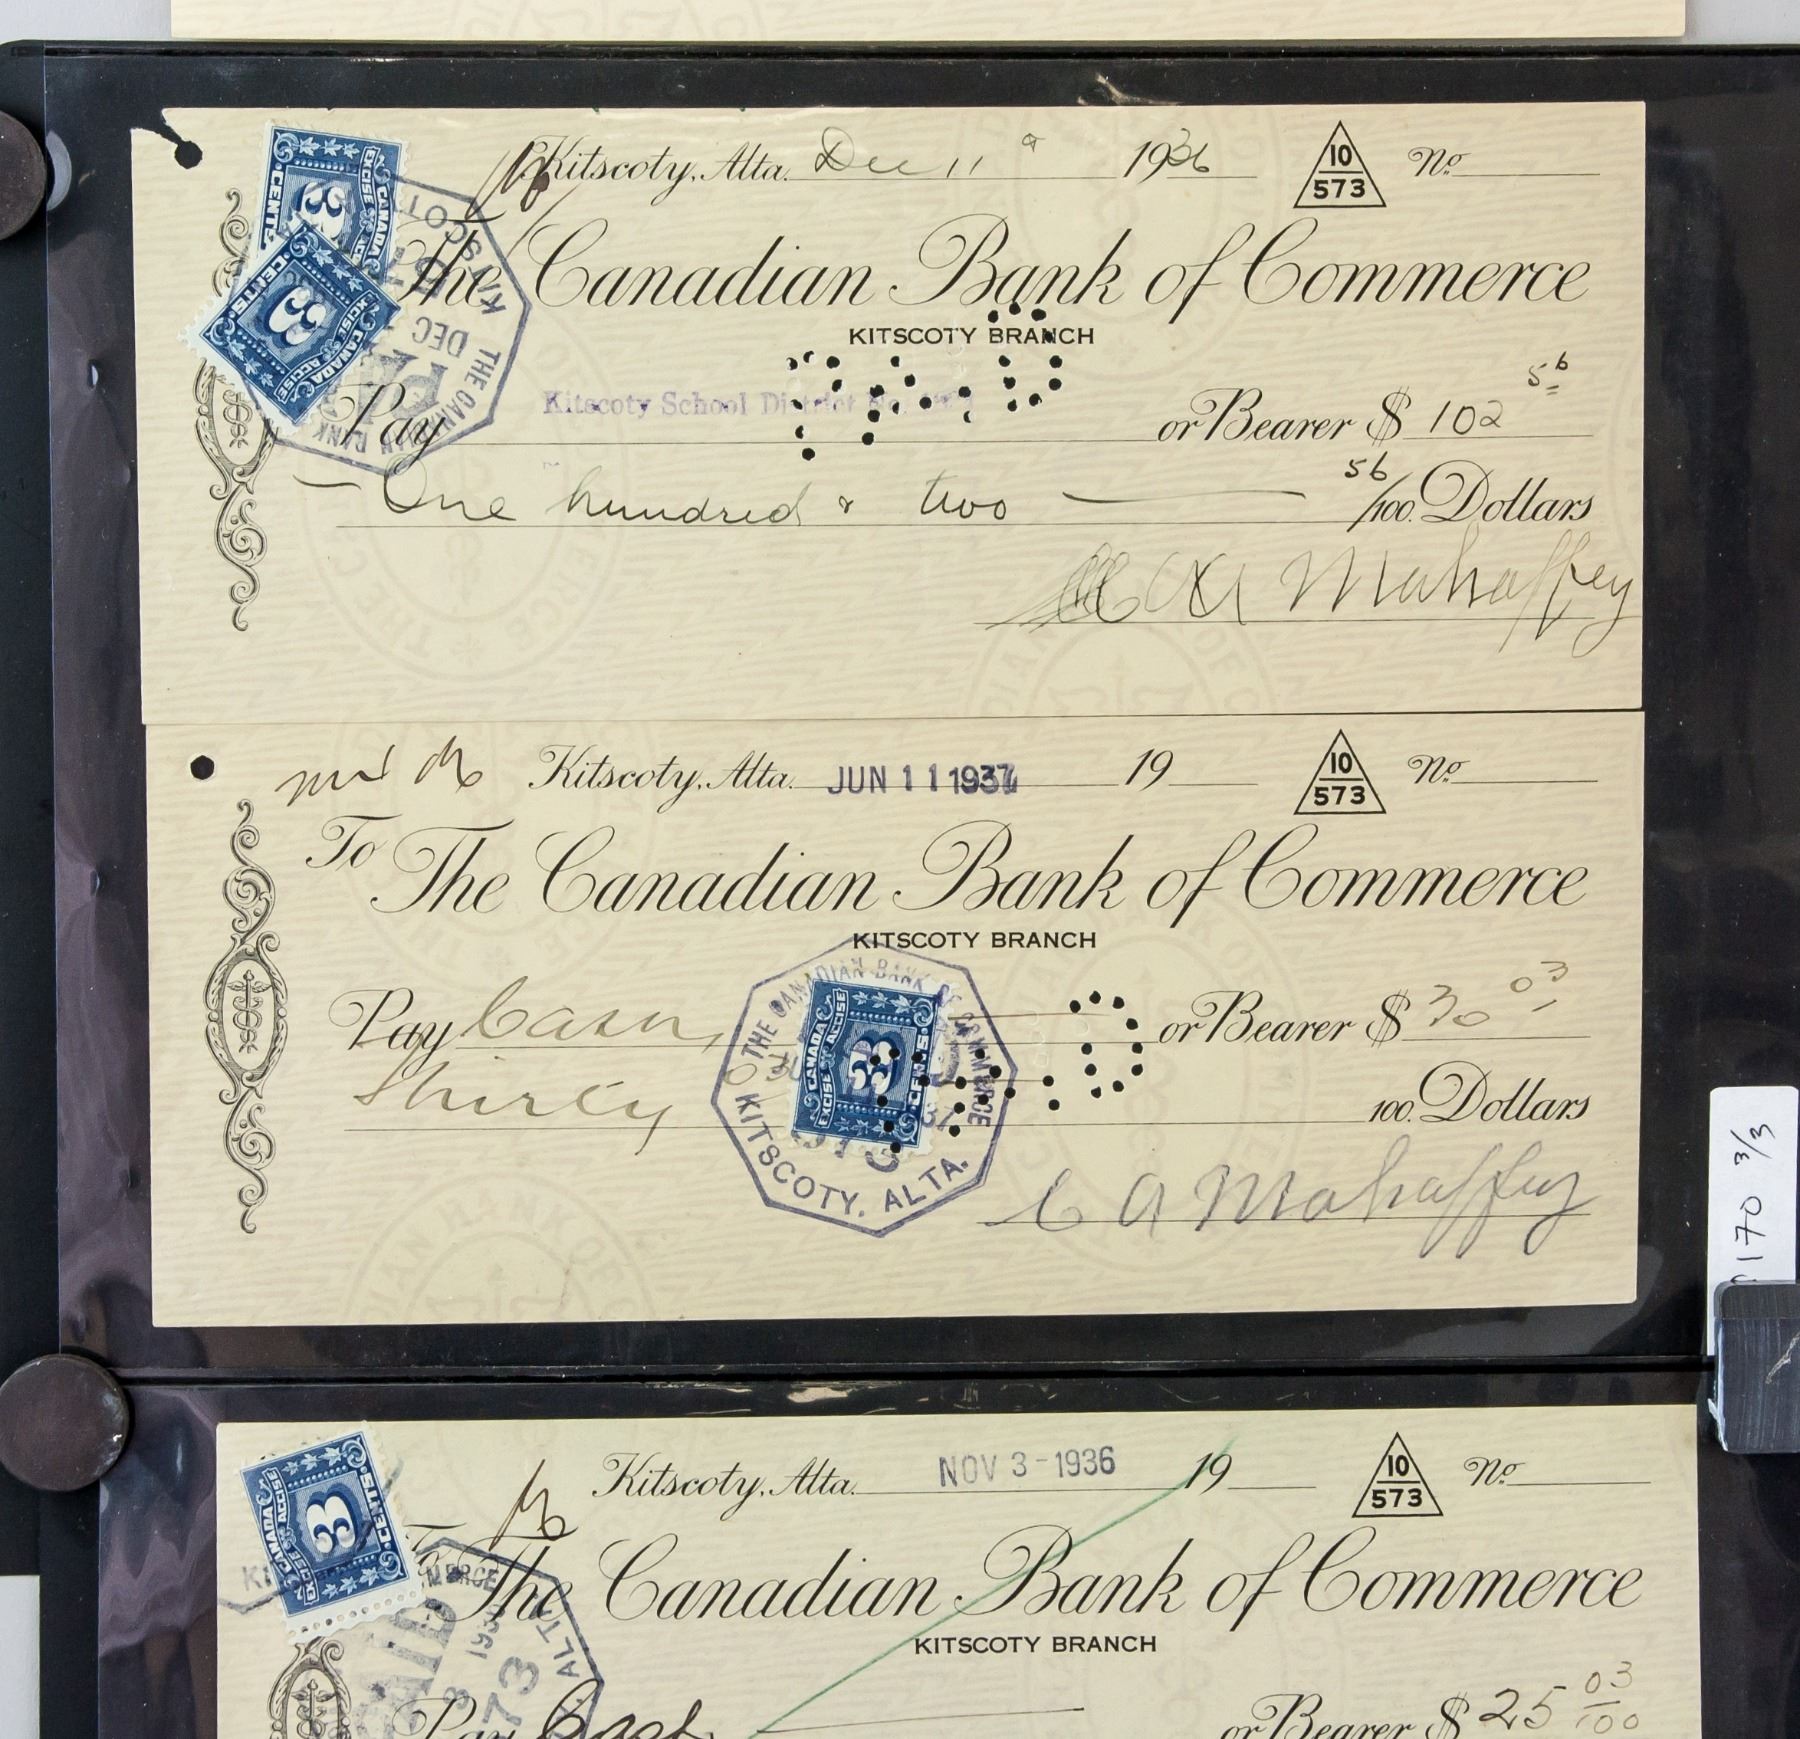 Kitscoty, Alta. Dec 11 1936 10/573 No.
The Canadian Bank of Commerce
KITSCOTY BRANCH
Pay Kitscoty School District No. or Bearer $ 102 56
One hundred & two 56/100 Dollars
C A Mahaffey
CANADA
EXCISE ACCISE
3
CENTS
CANADA
EXCISE ACCISE
3
CENTS
KITSCOTY
DEC
THE CANADIAN BANK
Kitscoty, Alta. JUN 11 1937 19 10/573 No.
To The Canadian Bank of Commerce
KITSCOTY BRANCH
Pay Cash, or Bearer $ 30 03
Thirty 100 Dollars
C A Mahaffey
THE CANADIAN BANK OF COMMERCE
KITSCOTY, ALTA.
CANADA
EXCISE ACCISE
3
CENTS
Kitscoty, Alta. NOV 3-1936 19 10/573 No.
To The Canadian Bank of Commerce
KITSCOTY BRANCH
Pay Cash or Bearer $ 25 03/100
CANADA
EXCISE ACCISE
3
CENTS
PAID
ALTA
73
170 3/3